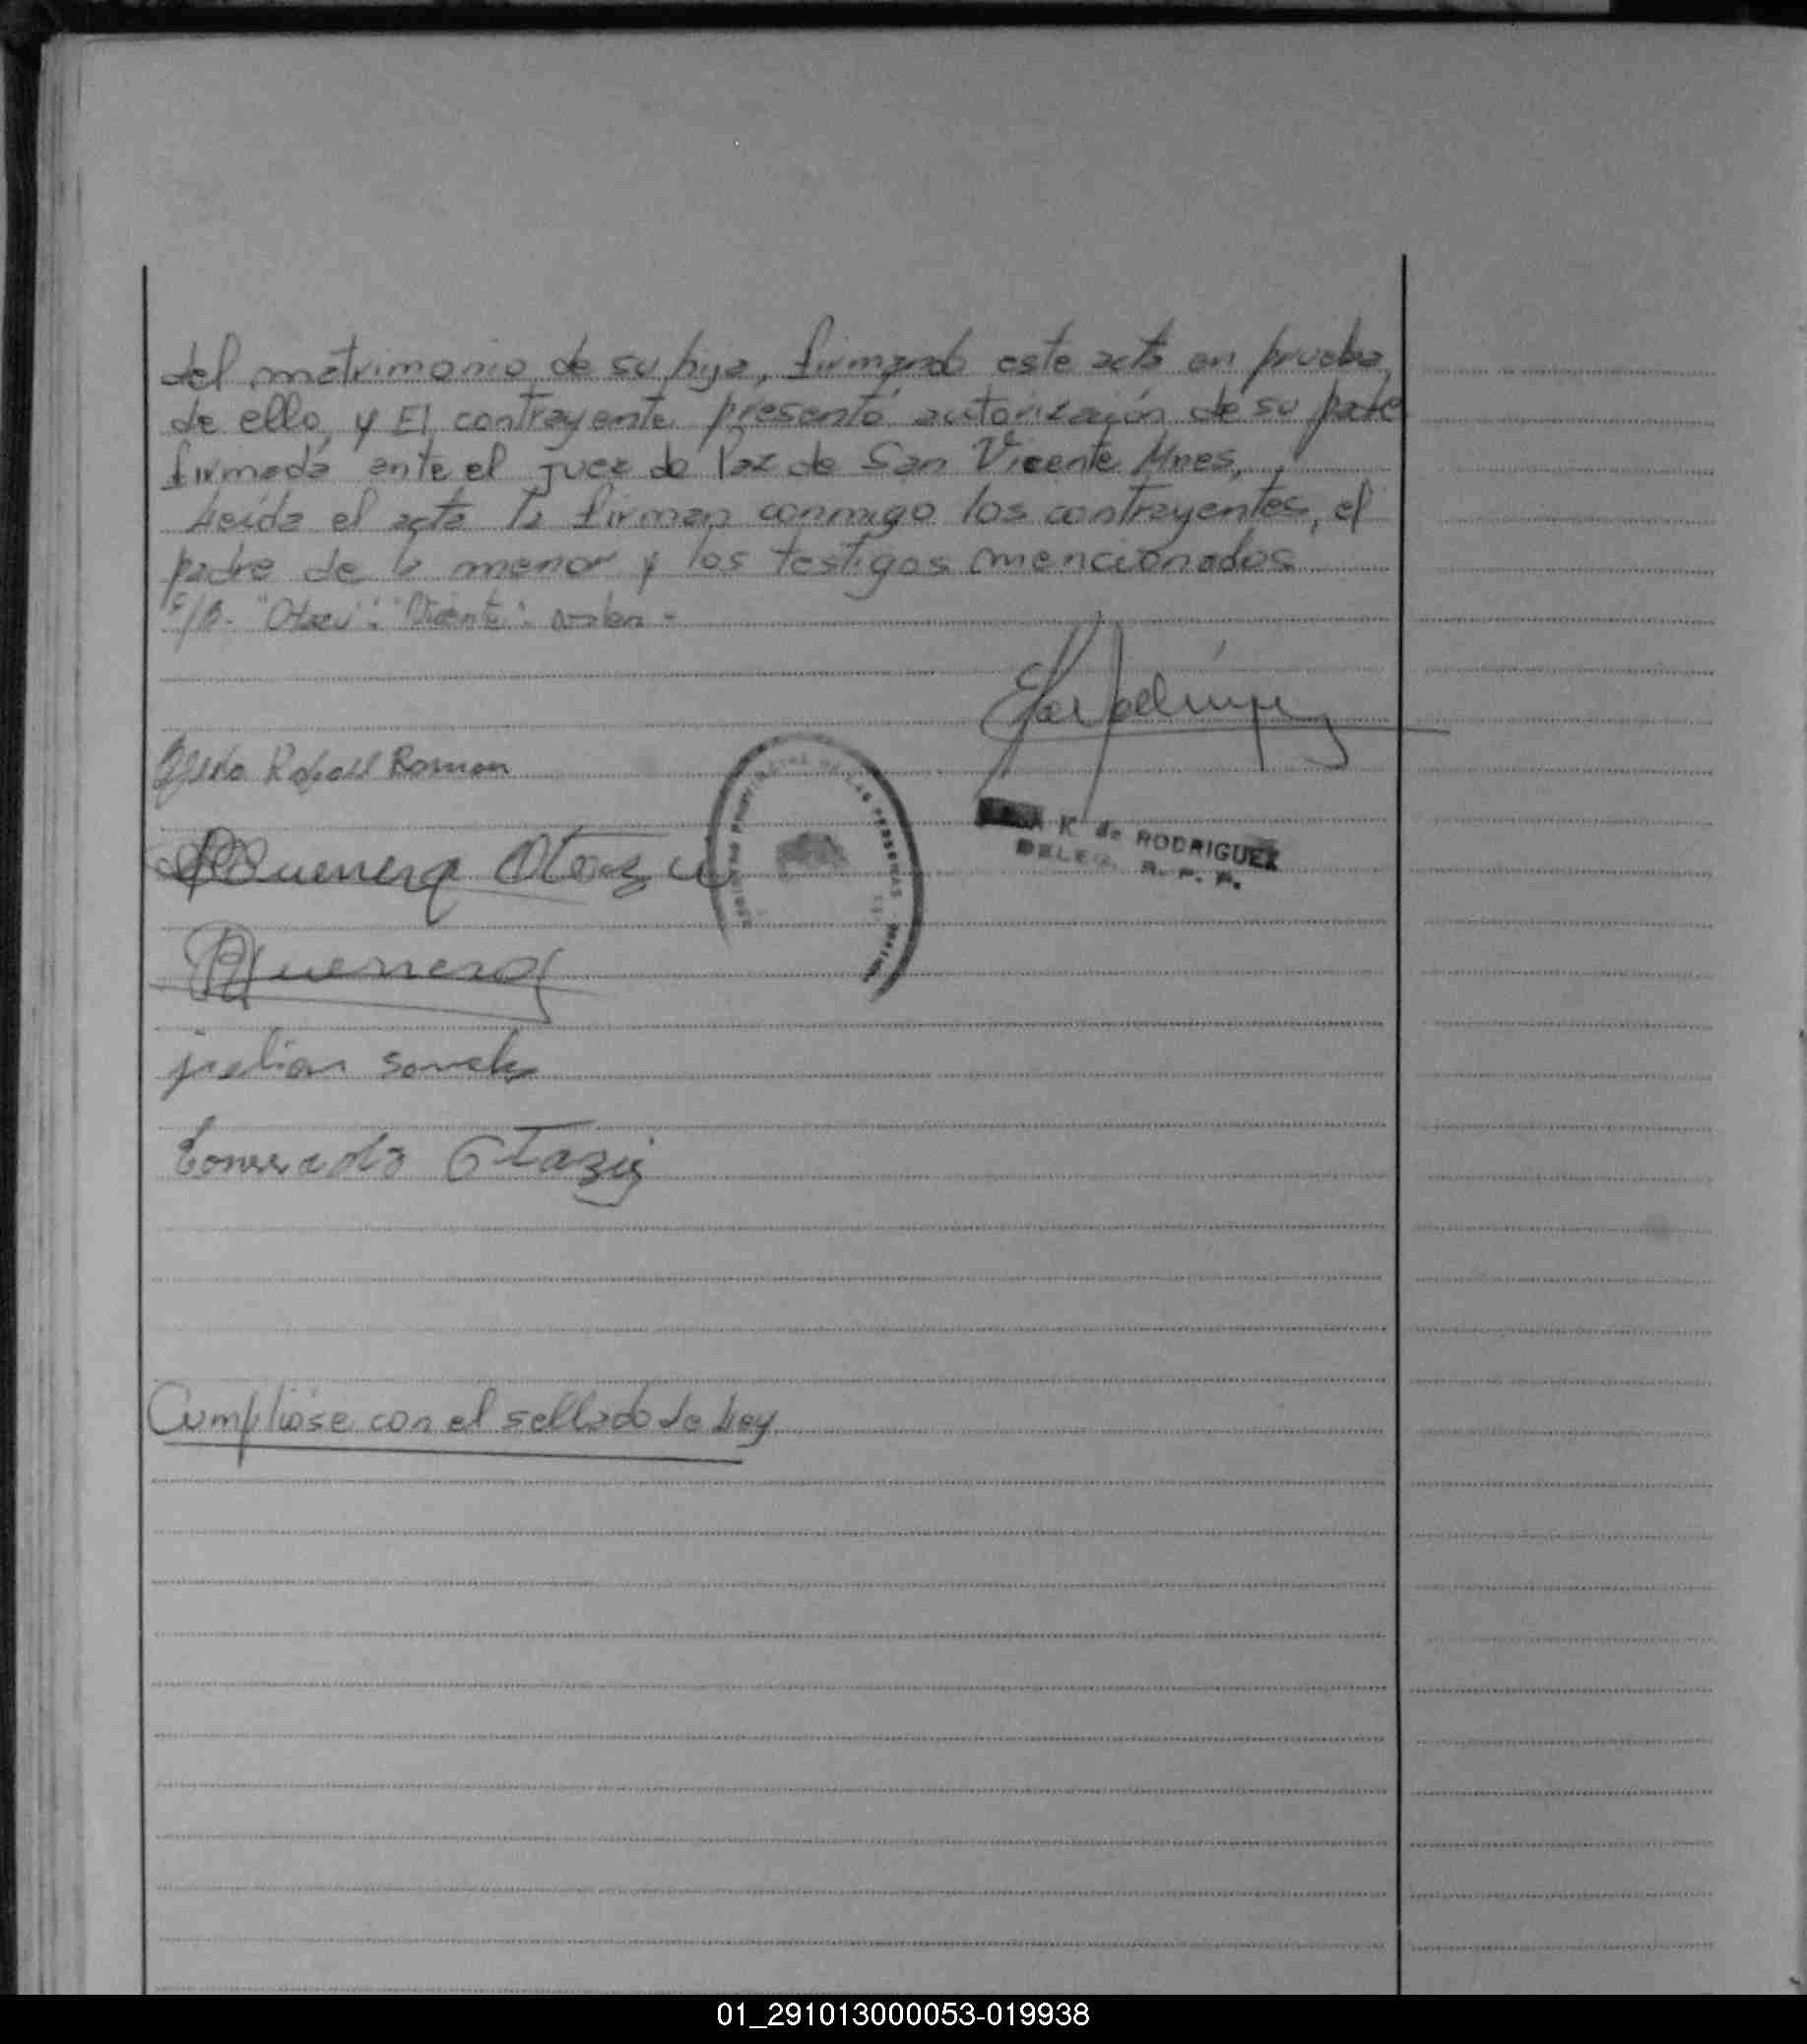 del matrimonio de su hija, firmando este acta en prueba
de ello, y El contrayente presentó autorización de su padre
firmada ante el Juez de Paz de San Vicente Mnes,
Leída el acta la firman conmigo los contrayentes, el
padre de la menor y los testigos mencionados
S/B. "Otazu": "Vicente":
Rafael Roman
K. de RODRIGUEZ
DELEG. R. P. P.
Otazu
DE LAS PERSONAS
julian
Conrado Otazu
Cumplióse con el sellado de Ley
01_291013000053-019938